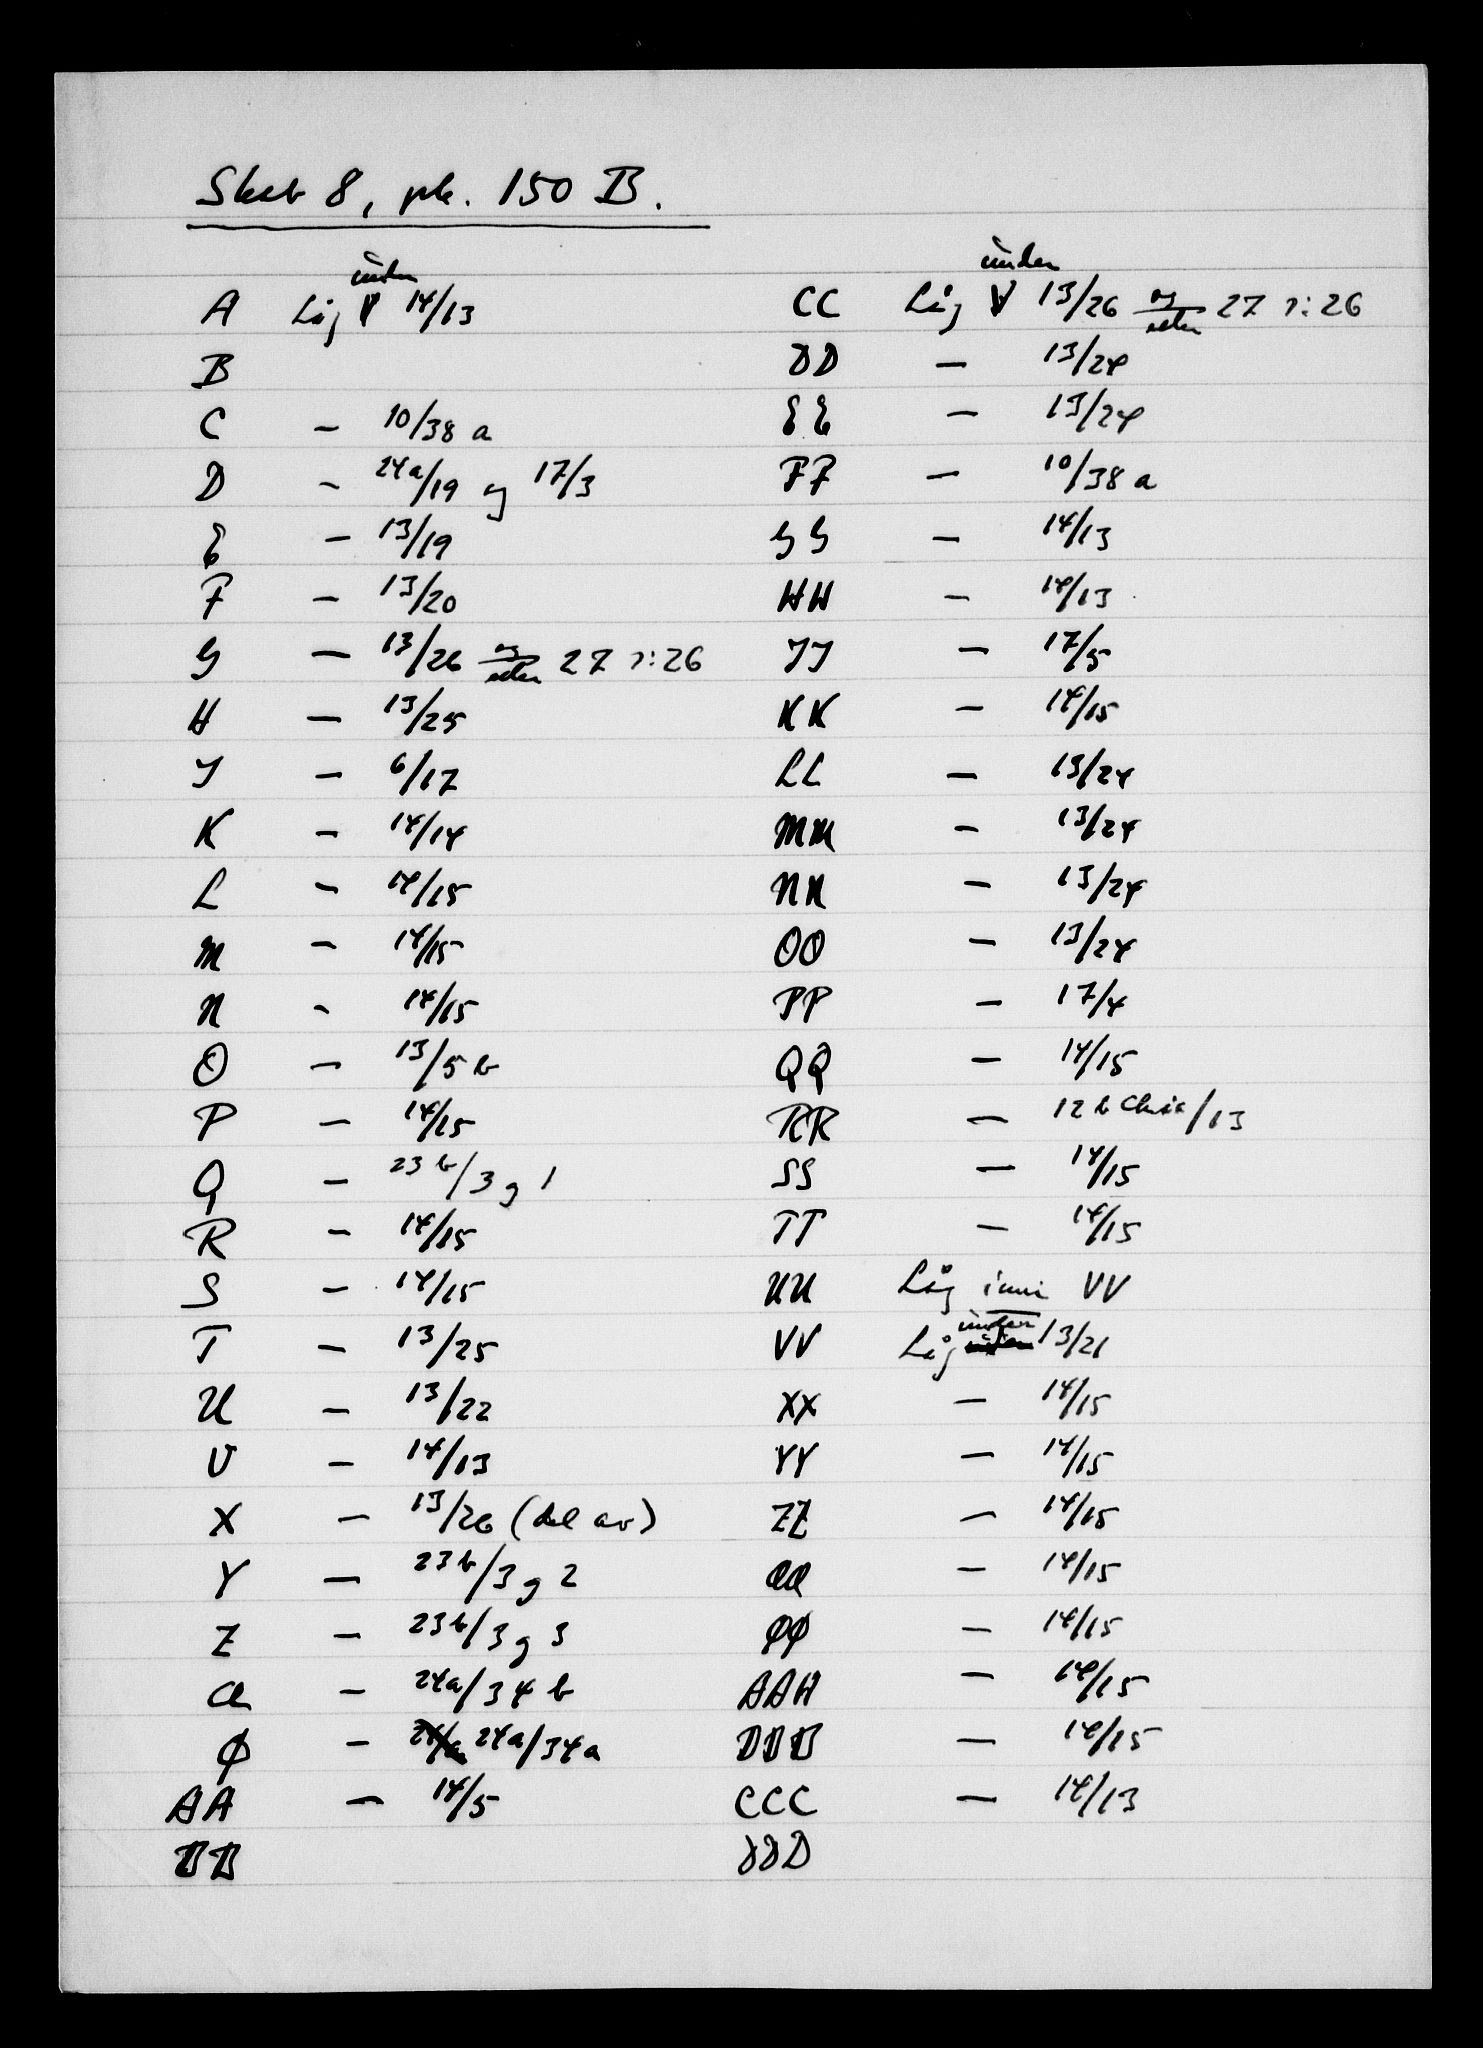 Skab 8, pk. 150 B.
A Låg under 14/13
B
C — 10/38 a
D — 24a/19 og 17/3
E — 13/19
F — 13/20
G — 13/26 og/eller 27 ɔ: 26
H — 13/25
J — 6/17
K — 14/14
L — 14/15
M — 14/15
N — 14/15
O — 13/5 b
P — 14/15
Q — 23 b/3 g 1
R — 14/15
S — 14/15
T — 13/25
U — 13/22
V — 14/13
X — 13/26 (del av)
Y — 23 b/3 g 2
Z — 23 b/3 g 3
Æ — 24a/34 b
Ø — 24a/34a
AA — 14/5
BB
CC Låg under 13/26 og/eller 27 ɔ: 26
DD — 13/24
EE — 13/24
FF — 10/38 a
GG — 14/13
HH — 14/13
JJ — 17/5
KK — 14/15
LL — 13/24
MM — 13/24
NN — 13/24
OO — 13/24
PP — 17/4
QQ — 14/15
RR — 12 b /13
SS — 14/15
TT — 14/15
UU Låg inni VV
VV Låg under 13/21
XX — 14/15
YY — 14/15
ZZ — 14/15
ÆÆ — 14/15
ØØ — 14/15
AAA — 14/15
BBB — 14/15
CCC — 14/13
DDD